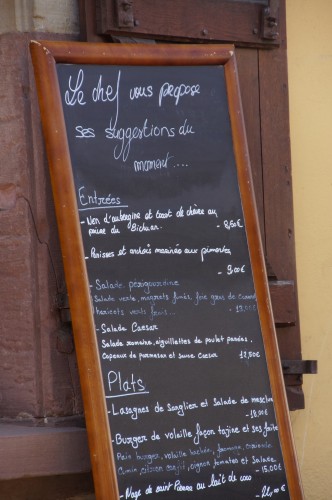 Le chef vous propose
ses suggestions du
moment....
Entrées
- d'aubergine et de chèvre au
- 8,50€
- et anchois marinés aux pimentos
- 9,00€
- Salade périgourdine
Salade verte, magrets fumés, foie gras de
haricots verts frais...
- Salade Caesar
Salade romaine, aiguillettes de poulet panées,
Copeaux de parmesan et sauce Caesar 17,50€
Plats
- Lasagnes de Sanglier et Salade de mesclun
- 18,00€
- Burger de volaille façon tajine et ses frites
Pain burger, volaille hachée,
Cumin, citron confit, oignon tomates et Salade
- 15,00€
- de Saint Pierre au lait de coco